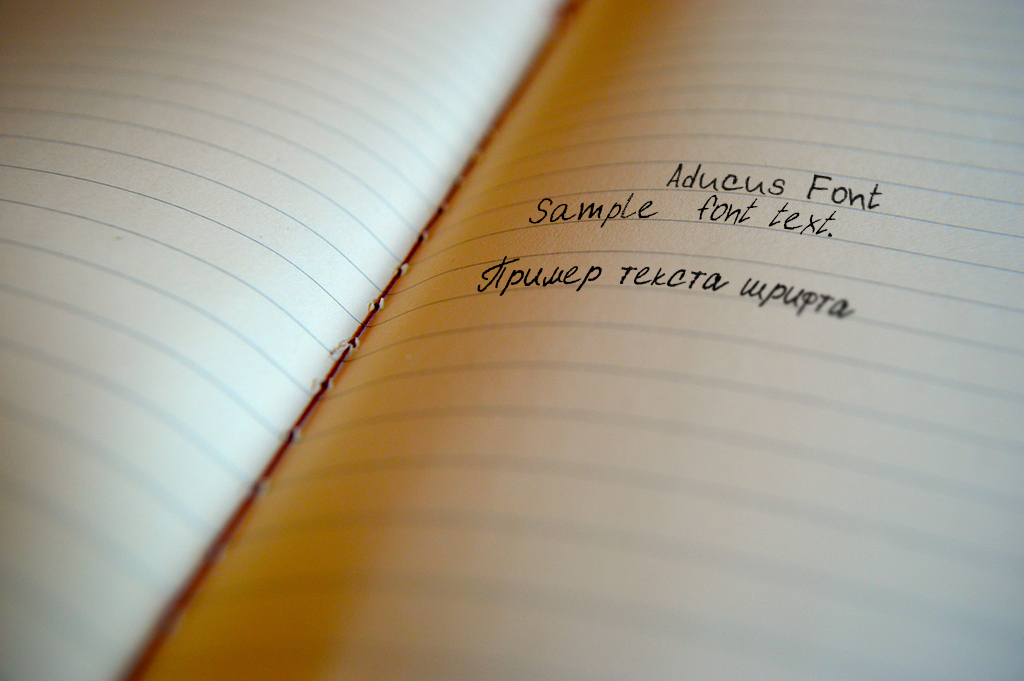 Aducus Font
Sample font text.
Пример текста шрифта